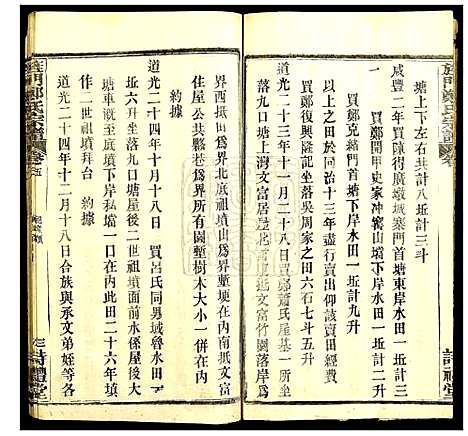 旌門鄭氏宗譜
詩禮堂
塘上下左右共計八坵計三斗
咸豐二年買陳得廣墩城寨門首塘東岸水田一坵計
買鄭開甲史家冲獨山塆下岸水田一坵計二升
買鄭克緒門首塘下岸水田一坵計九升
以上之田於同治十三年盡行賣訖賣田經費
買鄭復興隆記出坐落吳周家之田六石七斗五升
道光二十三年十一月二十八日買鄭蕭氏屋基一
落九口塘上灣文富居造北
抵文富竹園落岸爲
界西抵田爲界北底祖墳山爲界童埂在內南抵文富
住屋公共夥巷爲界所有園塹樹木大小一併在內
約據
道光二十四年十月十八日買呂氏同男域魯水田
坵六升坐落九口糖屋後二世祖墳面前水係屋後大
塘車漑至底塘下岸私壋一口在內此田二十六年
作二世祖墳拜台
約據
道光二十四年十二月十八日合族與承文弟姪等各
旌門鄭氏宗譜
詩禮堂